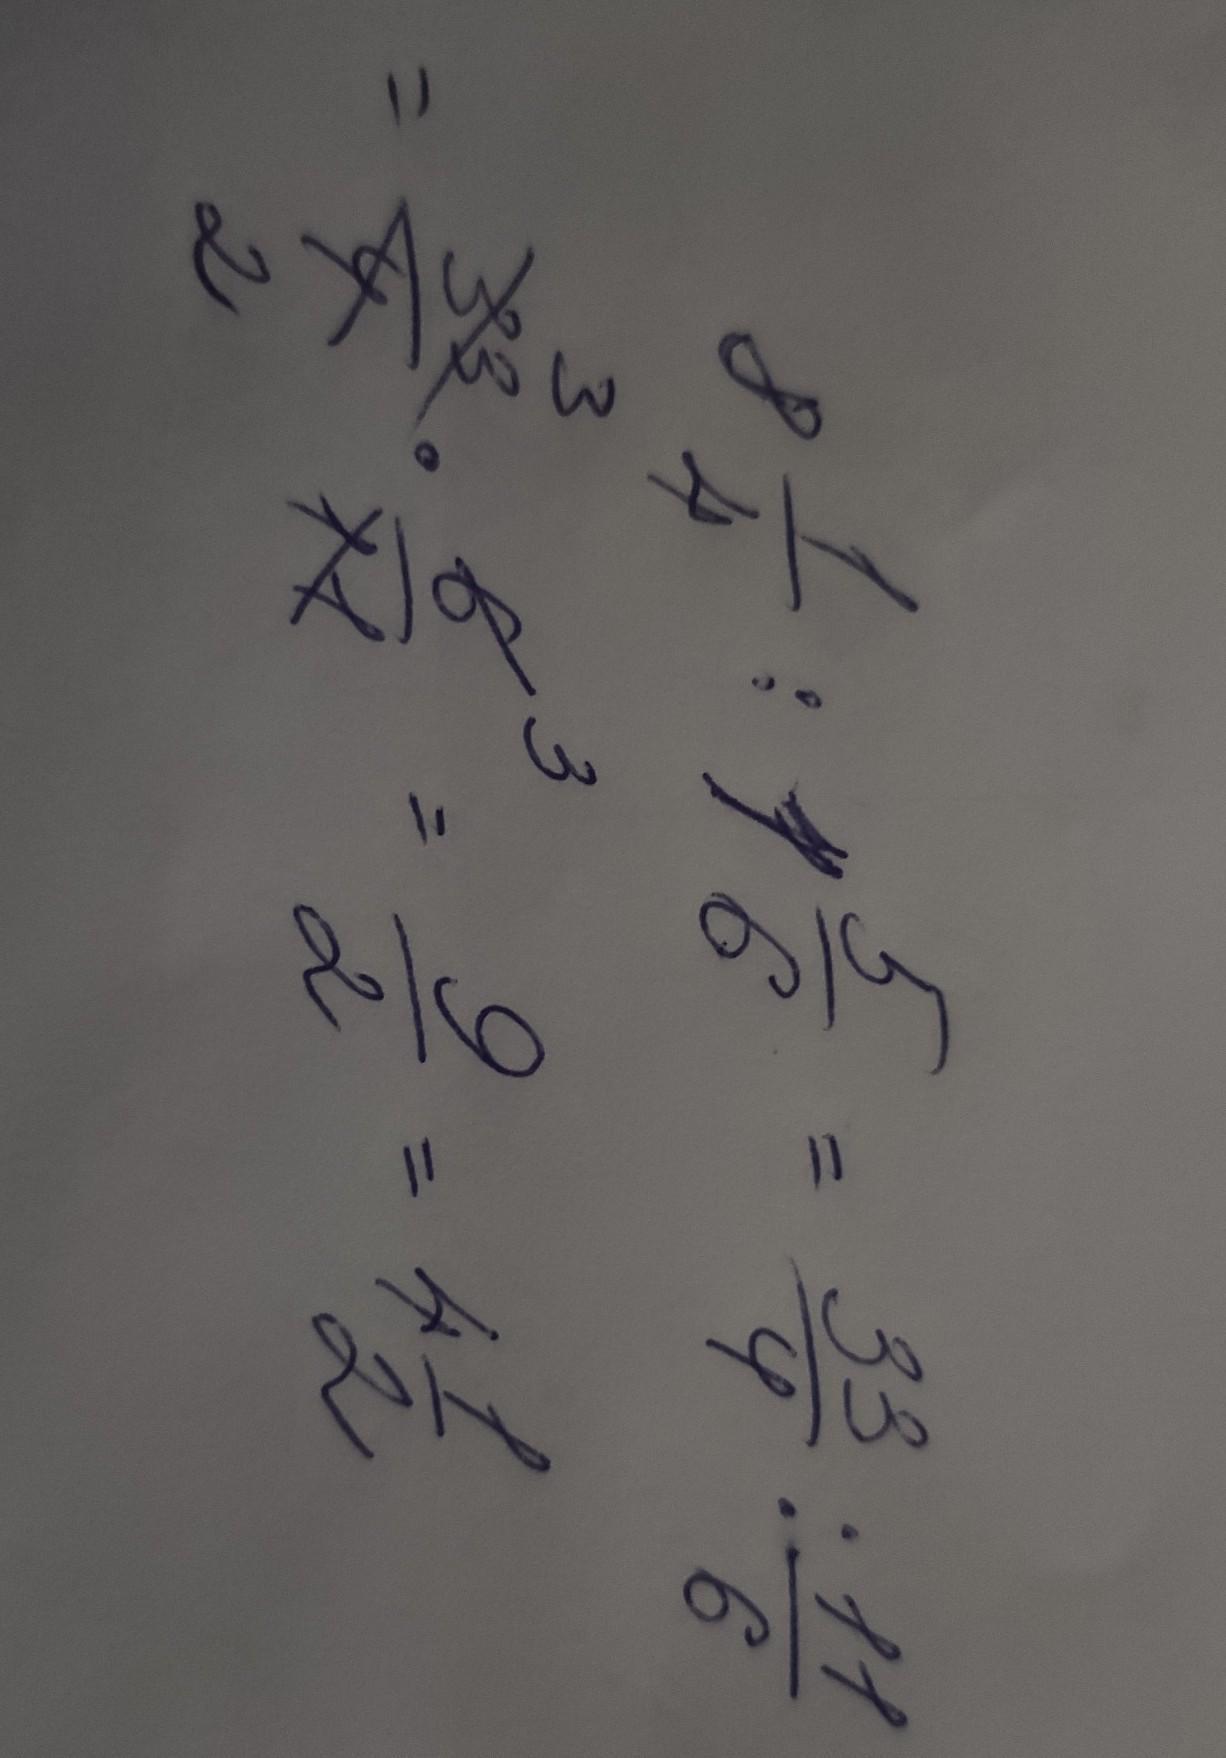 8 1/4 : 1 5/6 = 33/4 : 11/6
= 33/4 3 2 · 6/11 3 = 9/2 = 4 1/2